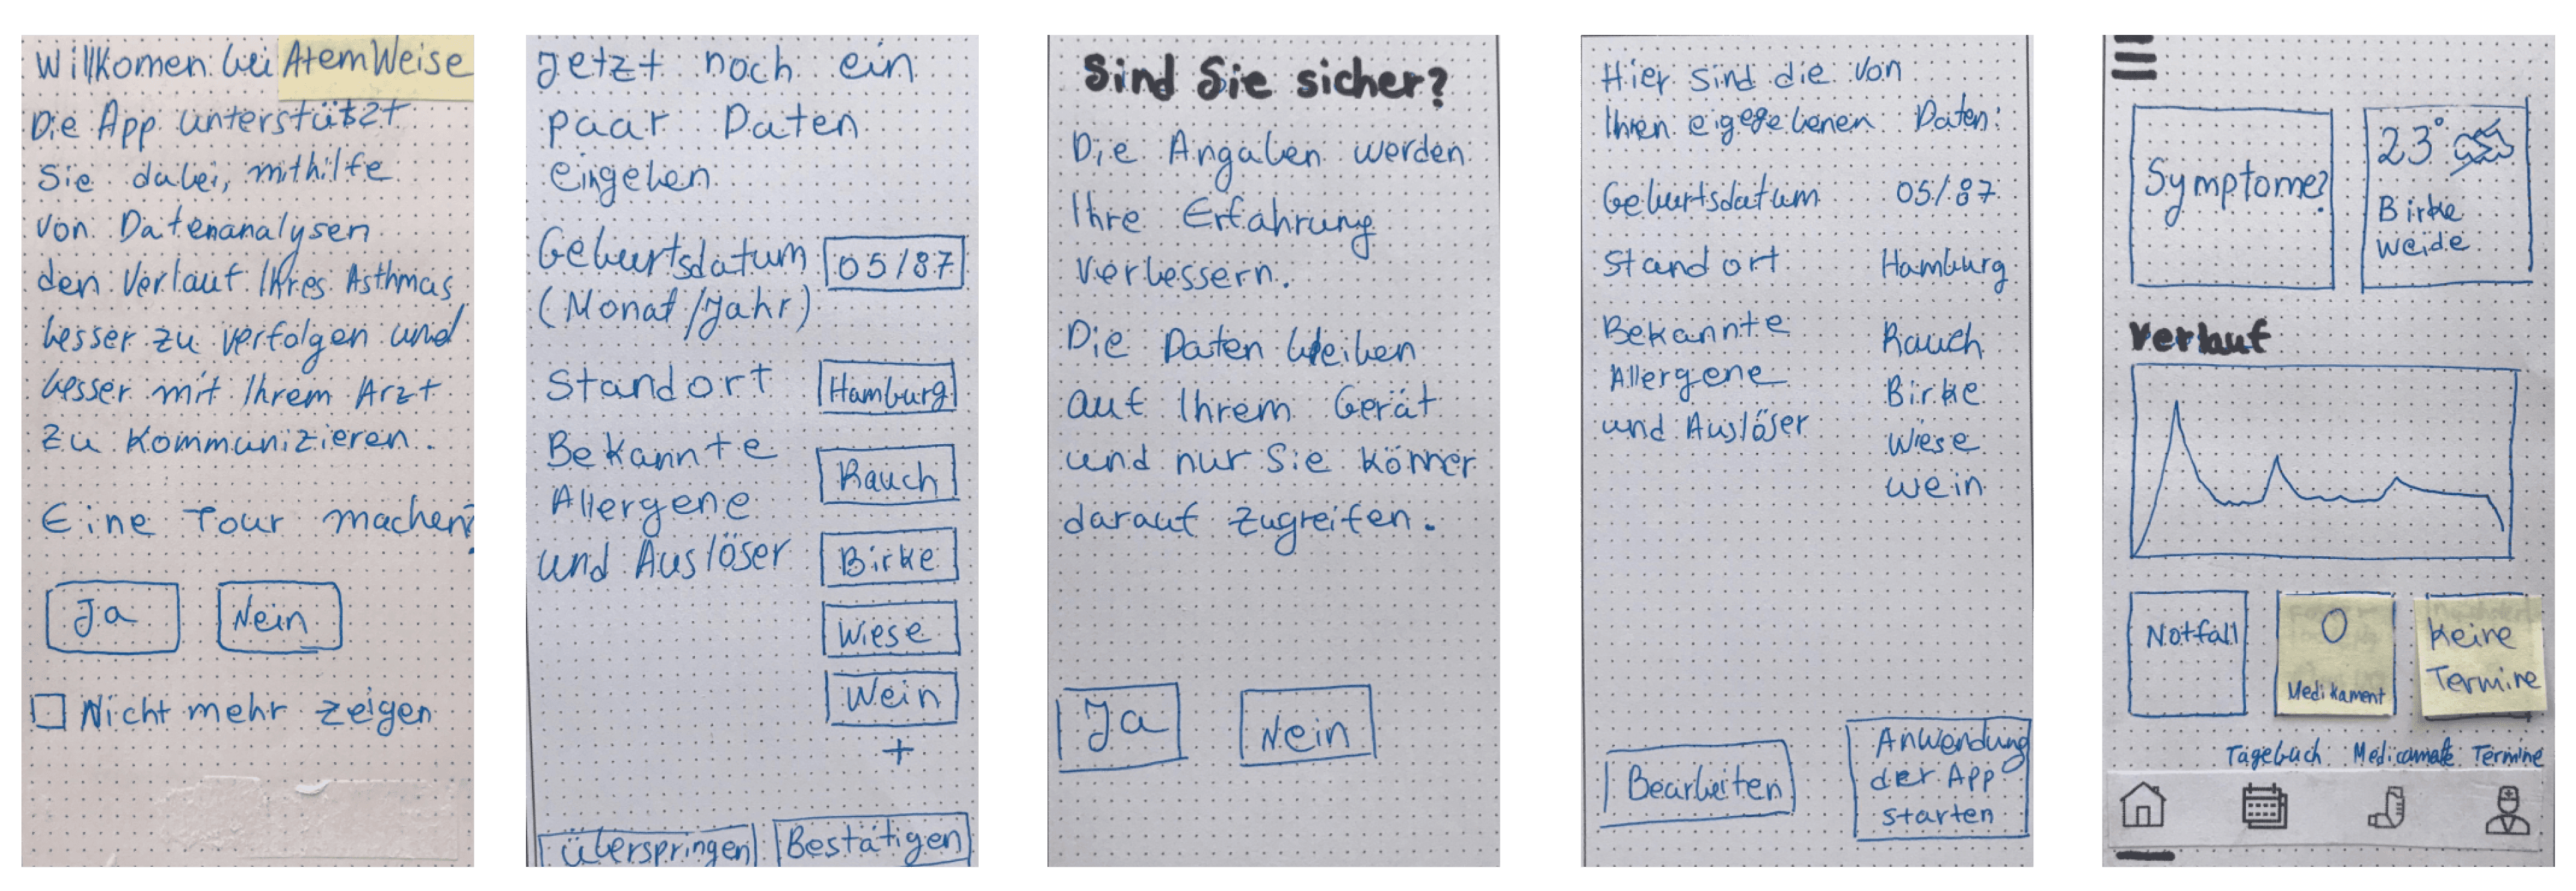 Willkomen bei AtemWeise
Die App unterstützt
Sie dabei, mithilfe
von Datenanalysen
den Verlauf Ihres Asthmas
besser zu verfolgen und
besser mit Ihrem Arzt
zu kommunizieren.
Eine Tour machen?
Ja
Nein
Nicht mehr zeigen
Jetzt noch ein
paar Daten
eingeben
Geburtsdatum 05/87
(Monat/Jahr)
Standort Hamburg
Bekannte Rauch
Allergene
und Auslöser Birke
Wiese
Wein
+
Überspringen Bestätigen
Sind Sie sicher?
Die Angaben werden
Ihre Erfahrung
verbessern.
Die Daten bleiben
auf Ihrem Gerät
und nur Sie können
darauf zugreifen.
Ja
Nein
Hier sind die von
Ihnen eigegebenen Daten:
Geburtsdatum 05/87
Standort Hamburg
Bekannte Rauch
Allergene Birke
und Auslöser Wiese
Wein
Bearbeiten
Anwendung
der App
starten
Symptome?
23°
Birke
Weide
Verlauf
Notfall
0
Medikament
Keine
Termine
Tagebuch Medicamate Termine